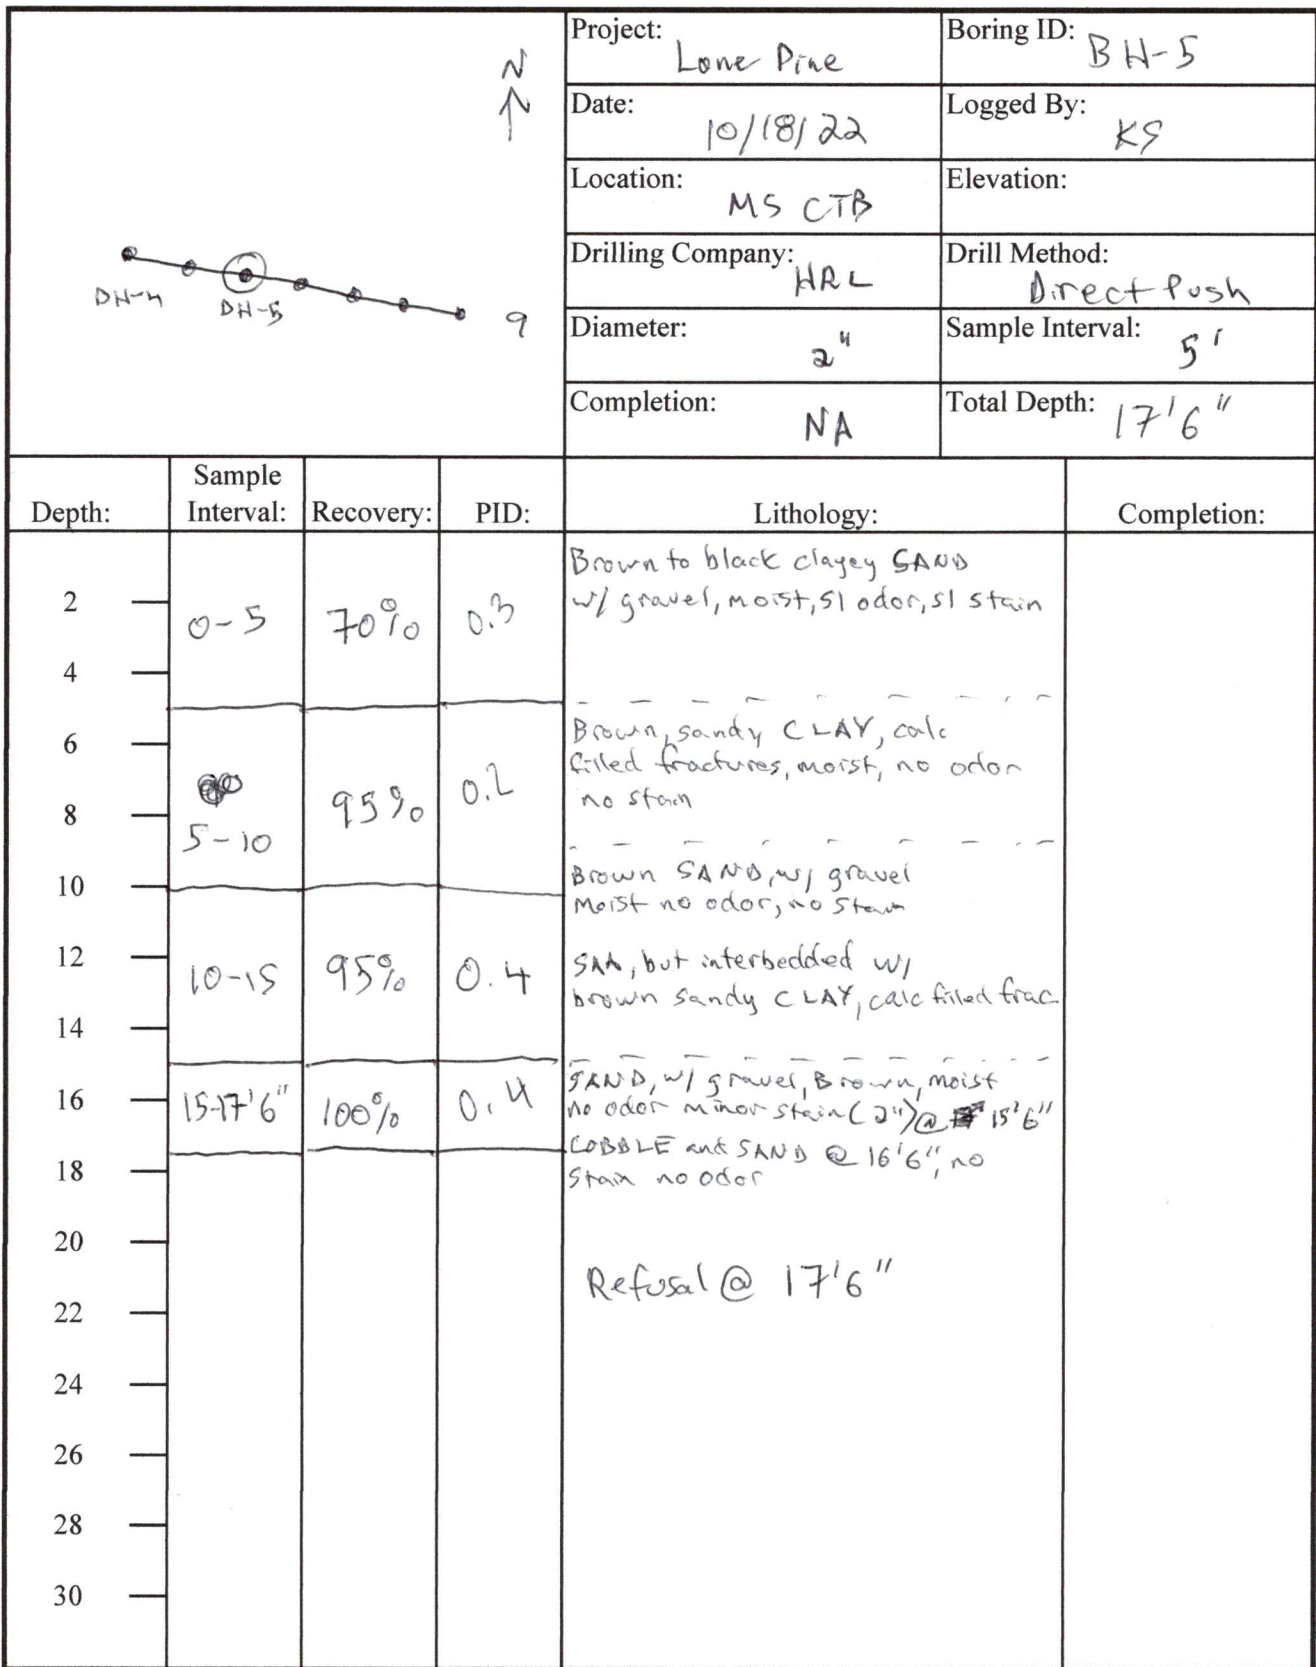 N
BH-4
BH-5
9
Project: Lone Pine
Boring ID: BH-5
Date: 10/18/22
Logged By: KS
Location: MS CTB
Elevation:
Drilling Company: HRL
Drill Method: Direct Push
Diameter: 2"
Sample Interval: 5'
Completion: NA
Total Depth: 17'6"
Depth: Sample Interval: Recovery: PID: Lithology: Completion:
Brown to black clayey SAND
2
w/ gravel, moist, sl odor, sl stain
0-5 70% 0.3
4
Brown, sandy CLAY, calc
6
filled fractures, moist, no odor
no stain
8
5-10 95% 0.2
10
Brown SAND, w/ gravel
Moist no odor, no stain
12
10-15 95% 0.4
SAA, but interbedded w/
brown sandy CLAY, calc filled frac
14
SAND, w/ gravel, Brown, moist
16
15-17'6" 100% 0.4
no odor minor stain (2") @ 15'6"
COBBLE and SAND @ 16'6", no
18
stain no odor
20
Refusal @ 17'6"
22
24
26
28
30